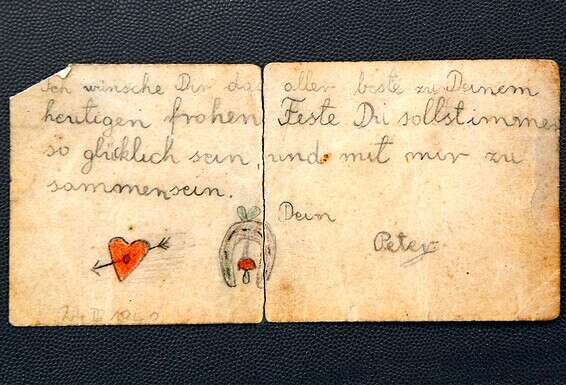 Ich wünsche Dir das aller beste zu Deinem
heutigen frohen Feste Du sollst immer
so glücklich sein, und mit mir zu
sammensein.
Dein
Peter
II